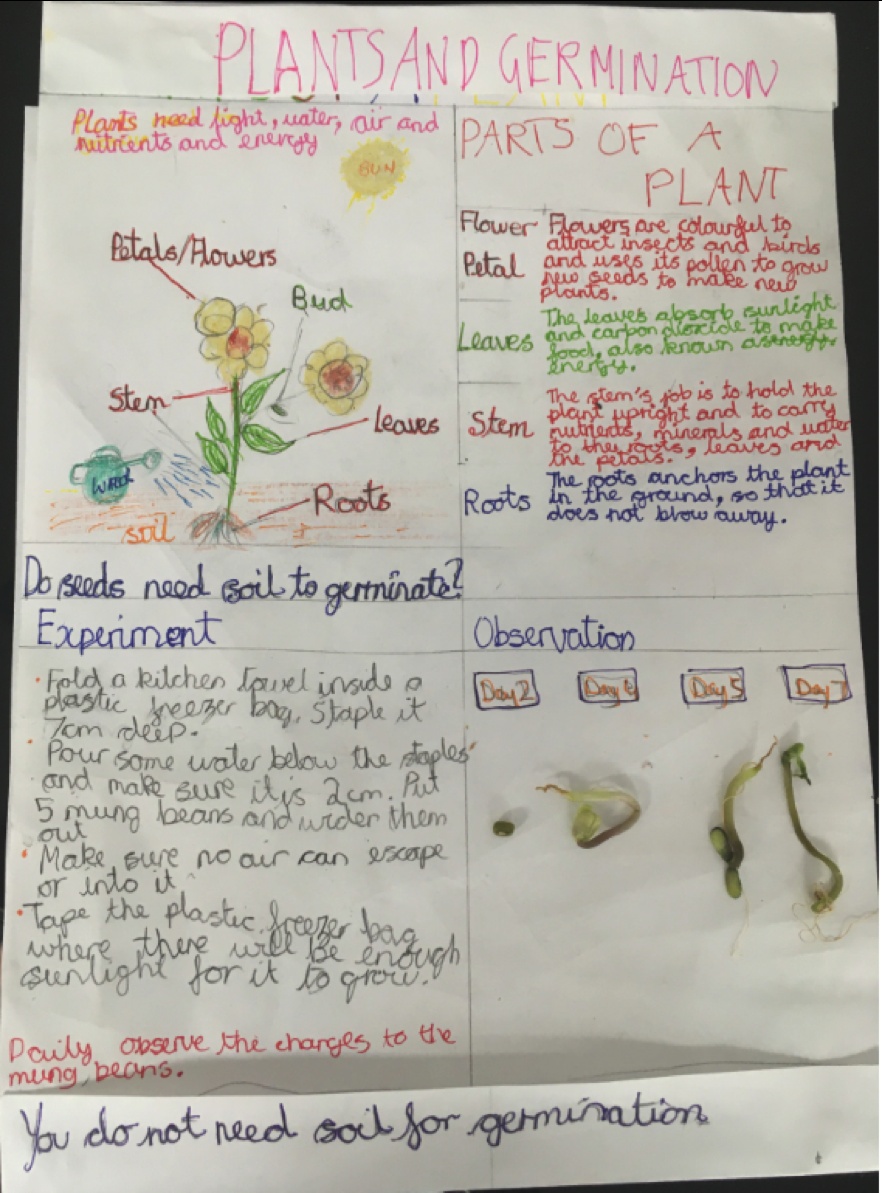 PLANTS AND GERMINATION
Plants need light, water, air and
nutrients and energy
SUN
Petals/Flowers
Bud
Stem
Leaves
Roots
soil
PARTS OF A
PLANT
Flower
Petal
Flowers are colourful to
attract insects and birds
and uses its pollen to grow
new seeds to make new
plants.
Leaves
The leaves absorb sunlight
and carbon dioxcide to make
food, also known as energy.
energy.
Stem
The stem's job is to hold the
plant upright and to carry
nutrients, minerals and water
to the roots, leaves and
the petals.
Roots
The roots anchors the plant
in the ground, so that it
does not blow away.
Do seeds need soil to germinate?
Experiment
• Fold a kitchen towel inside a
plastic freezer bag. Staple it
7cm deep.
• Pour some water below the staples
and make sure it is 2cm. Put
5 mung beans and wider them
out
• Make sure no air can escape
or into it.
• Tape the plastic freezer bag
where there will be enough
sunlight for it to grow.
Daily observe the changes to the
mung beans.
Observation
Day 2
Day
Day 5
Day 7
You do not need soil for germination